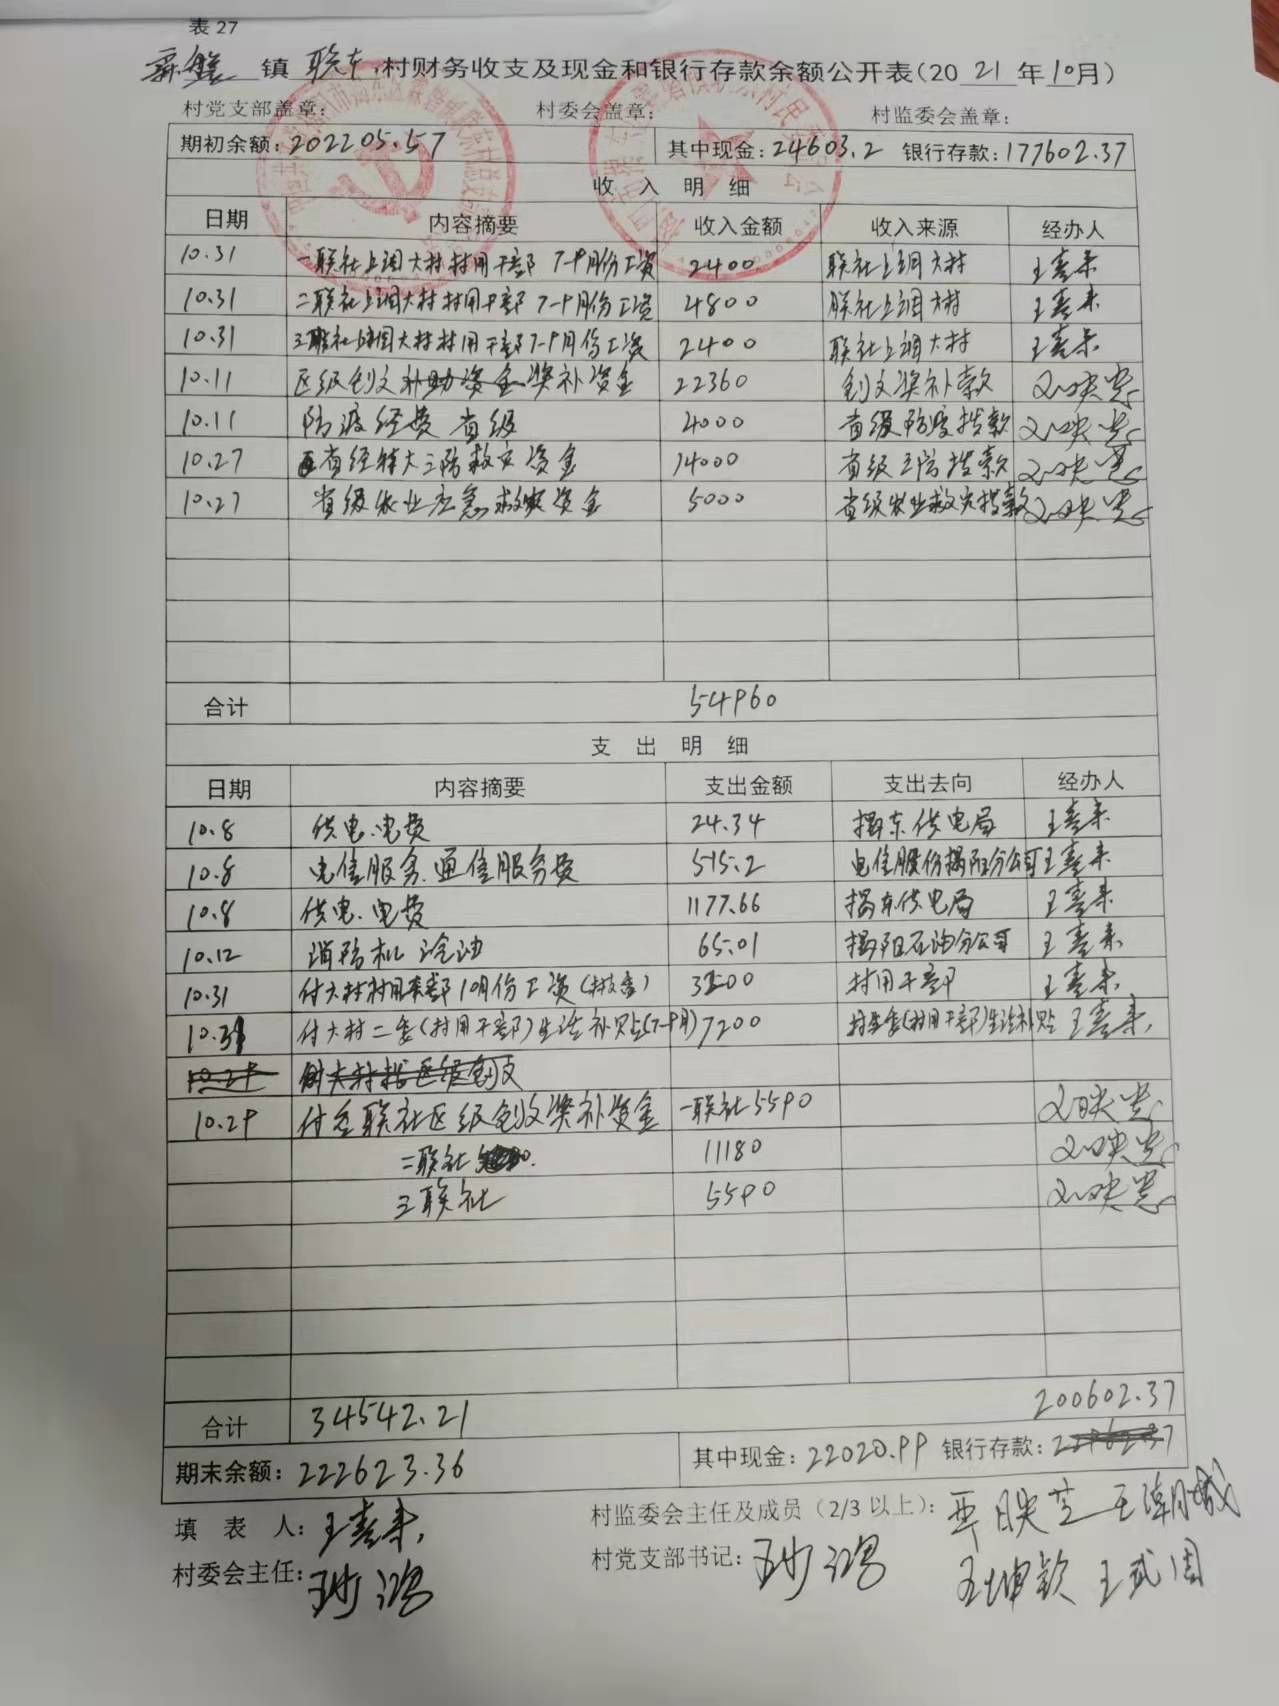 表 27
霖磐 镇 联东 村财务收支及现金和银行存款余额公开表(20 21 年 10 月)
村党支部盖章： 村委会盖章： 村监委会盖章：
期初余额：202205.57 其中现金：24603.2 银行存款：177602.37
收 入 明 细
日期 内容摘要 收入金额 收入来源 经办人
10.31 一联社上调大村村用干部 7-9月份工资 2400 联社上调大村 王喜来
10.31 二联社上调大村村用干部 7-9月份工资 4800 联社上调大村 王喜来
10.31 三联社上调大村村用干部 7-9月份工资 2400 联社上调大村 王喜来
10.11 区级创文补助资金奖补资金 22360 创文奖补款
10.11 防疫经费 省级 4000 省级防疫拨款
10.27 省经特大三防救灾资金 14000 省级三防拨款
10.27 省级农业应急救灾资金 5000 省级农业救灾拨款
合计 54960
支 出 明 细
日期 内容摘要 支出金额 支出去向 经办人
10.8 供电.电费 24.34 揭东供电局 王喜来
10.8 电信服务.通信服务费 515.2 电信股份揭阳分公司 王喜来
10.8 供电.电费 1177.66 揭东供电局 王喜来
10.12 消防机 汽油 65.01 揭阳石油分公司 王喜来
10.31 付大村村用干部10月份工资 3200 村用干部 王喜来
10.31 付大村二委(村用干部)生活补贴(7-9月) 7200 村委(村用干部)生活补贴 王喜来
10.29 付各联社区级创文奖补资金 一联社 5590
二联社 11180
三联社 5590
合计 34542.21 200602.37
期末余额：222623.36 其中现金：22020.99 银行存款：
填 表 人：王喜来 村监委会主任及成员（2/3 以上）：
村委会主任： 村党支部书记： 王坤钦 王武国